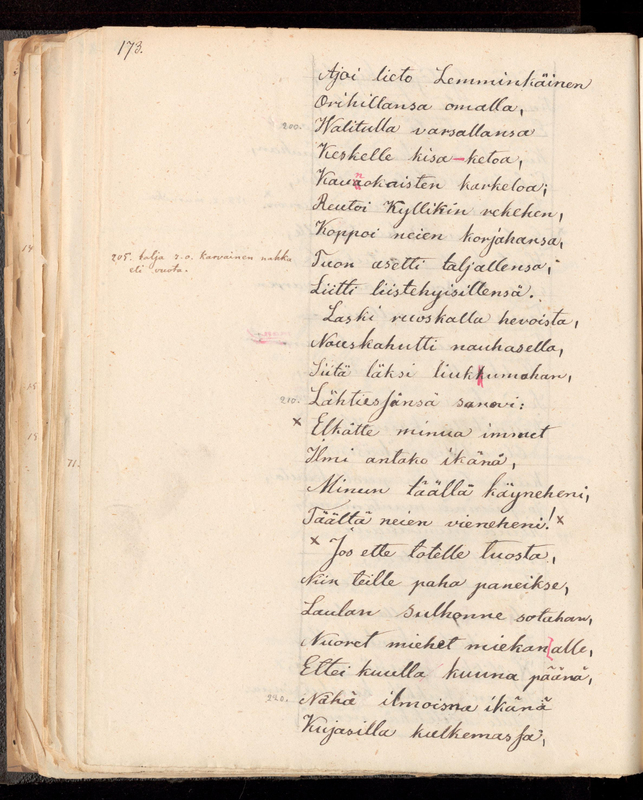 173.
Ajoi lieto Lemminkäinen
Orihillansa omalla,
200. Walitulla varsallansa
Keskelle kisa-ketoa,
Kaunokaisten karkeloa;
Reutoi Kyllikin rekehen,
Koppoi neien korjahansa,
205. talja s.o. karvainen nahka
eli vuota.
Tuon asetti taljallensa,
Liitti liistehyisillensä.
Laski ruoskalla hevoista,
Nauskahutti nauhasella,
Siitä läksi liukumahan,
210. Lähtiessänsä sanovi:
x Elkätte minua immet
Ilmi antako ikänä,
71.
Minun täällä käyneheni,
Täältä neien vieneheni! x
x Jos ette totelle tuosta,
Niin teille paha paneikse,
Laulan sulhonne sotahan,
Nuoret miehet miekan alle,
Ettei kuulla kuuna päänä,
220. Nähä ilmoisna ikänä
Kujasilla kulkemassa,
14
15
15